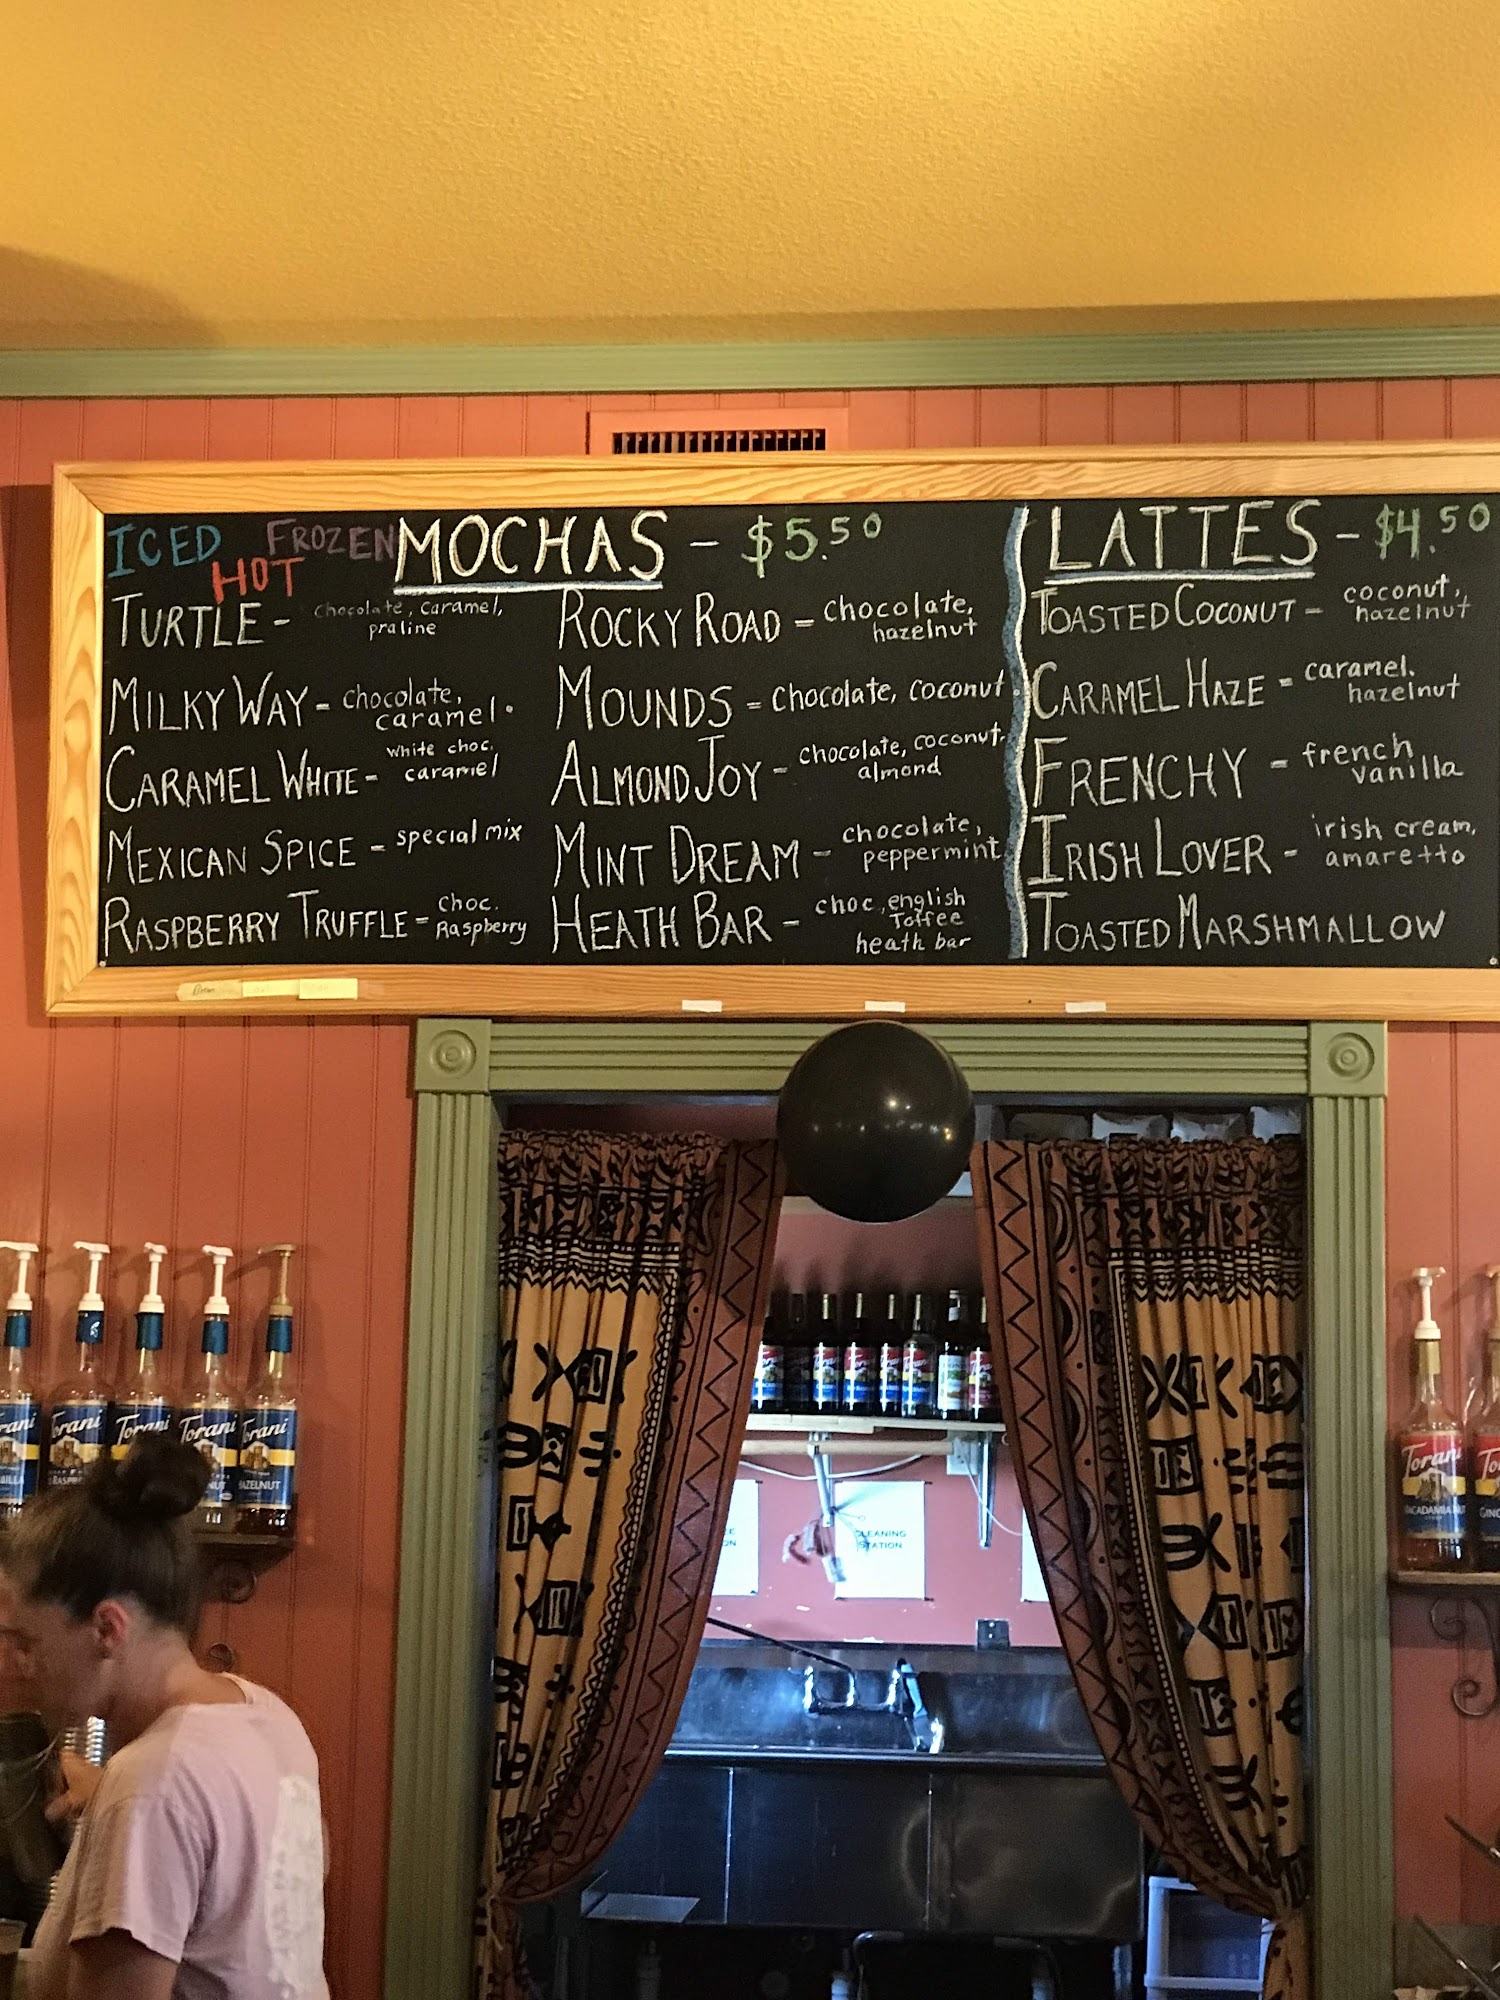 ICED HOT FROZEN MOCHAS - $5.50
TURTLE - chocolate, caramel,
praline
MILKY WAY - chocolate,
caramel.
CARAMEL WHITE - white choc.
caramel
MEXICAN SPICE - special mix
RASPBERRY TRUFFLE - choc.
Raspberry
ROCKY ROAD - chocolate,
hazelnut
MOUNDS - chocolate, coconut.
ALMOND JOY - chocolate, coconut.
almond
MINT DREAM - chocolate,
peppermint
HEATH BAR - choc, english
Toffee
heath bar
LATTES - $4.50
TOASTED COCONUT - coconut,
hazelnut
CARAMEL HAZE - caramel.
hazelnut
FRENCHY - french
vanilla
IRISH LOVER - irish cream,
amaretto
TOASTED MARSHMALLOW
Torani
Torani
Torani
Torani
HAZELNUT
Torani
CLEANING
STATION
Torani
MACADAMIA NUT